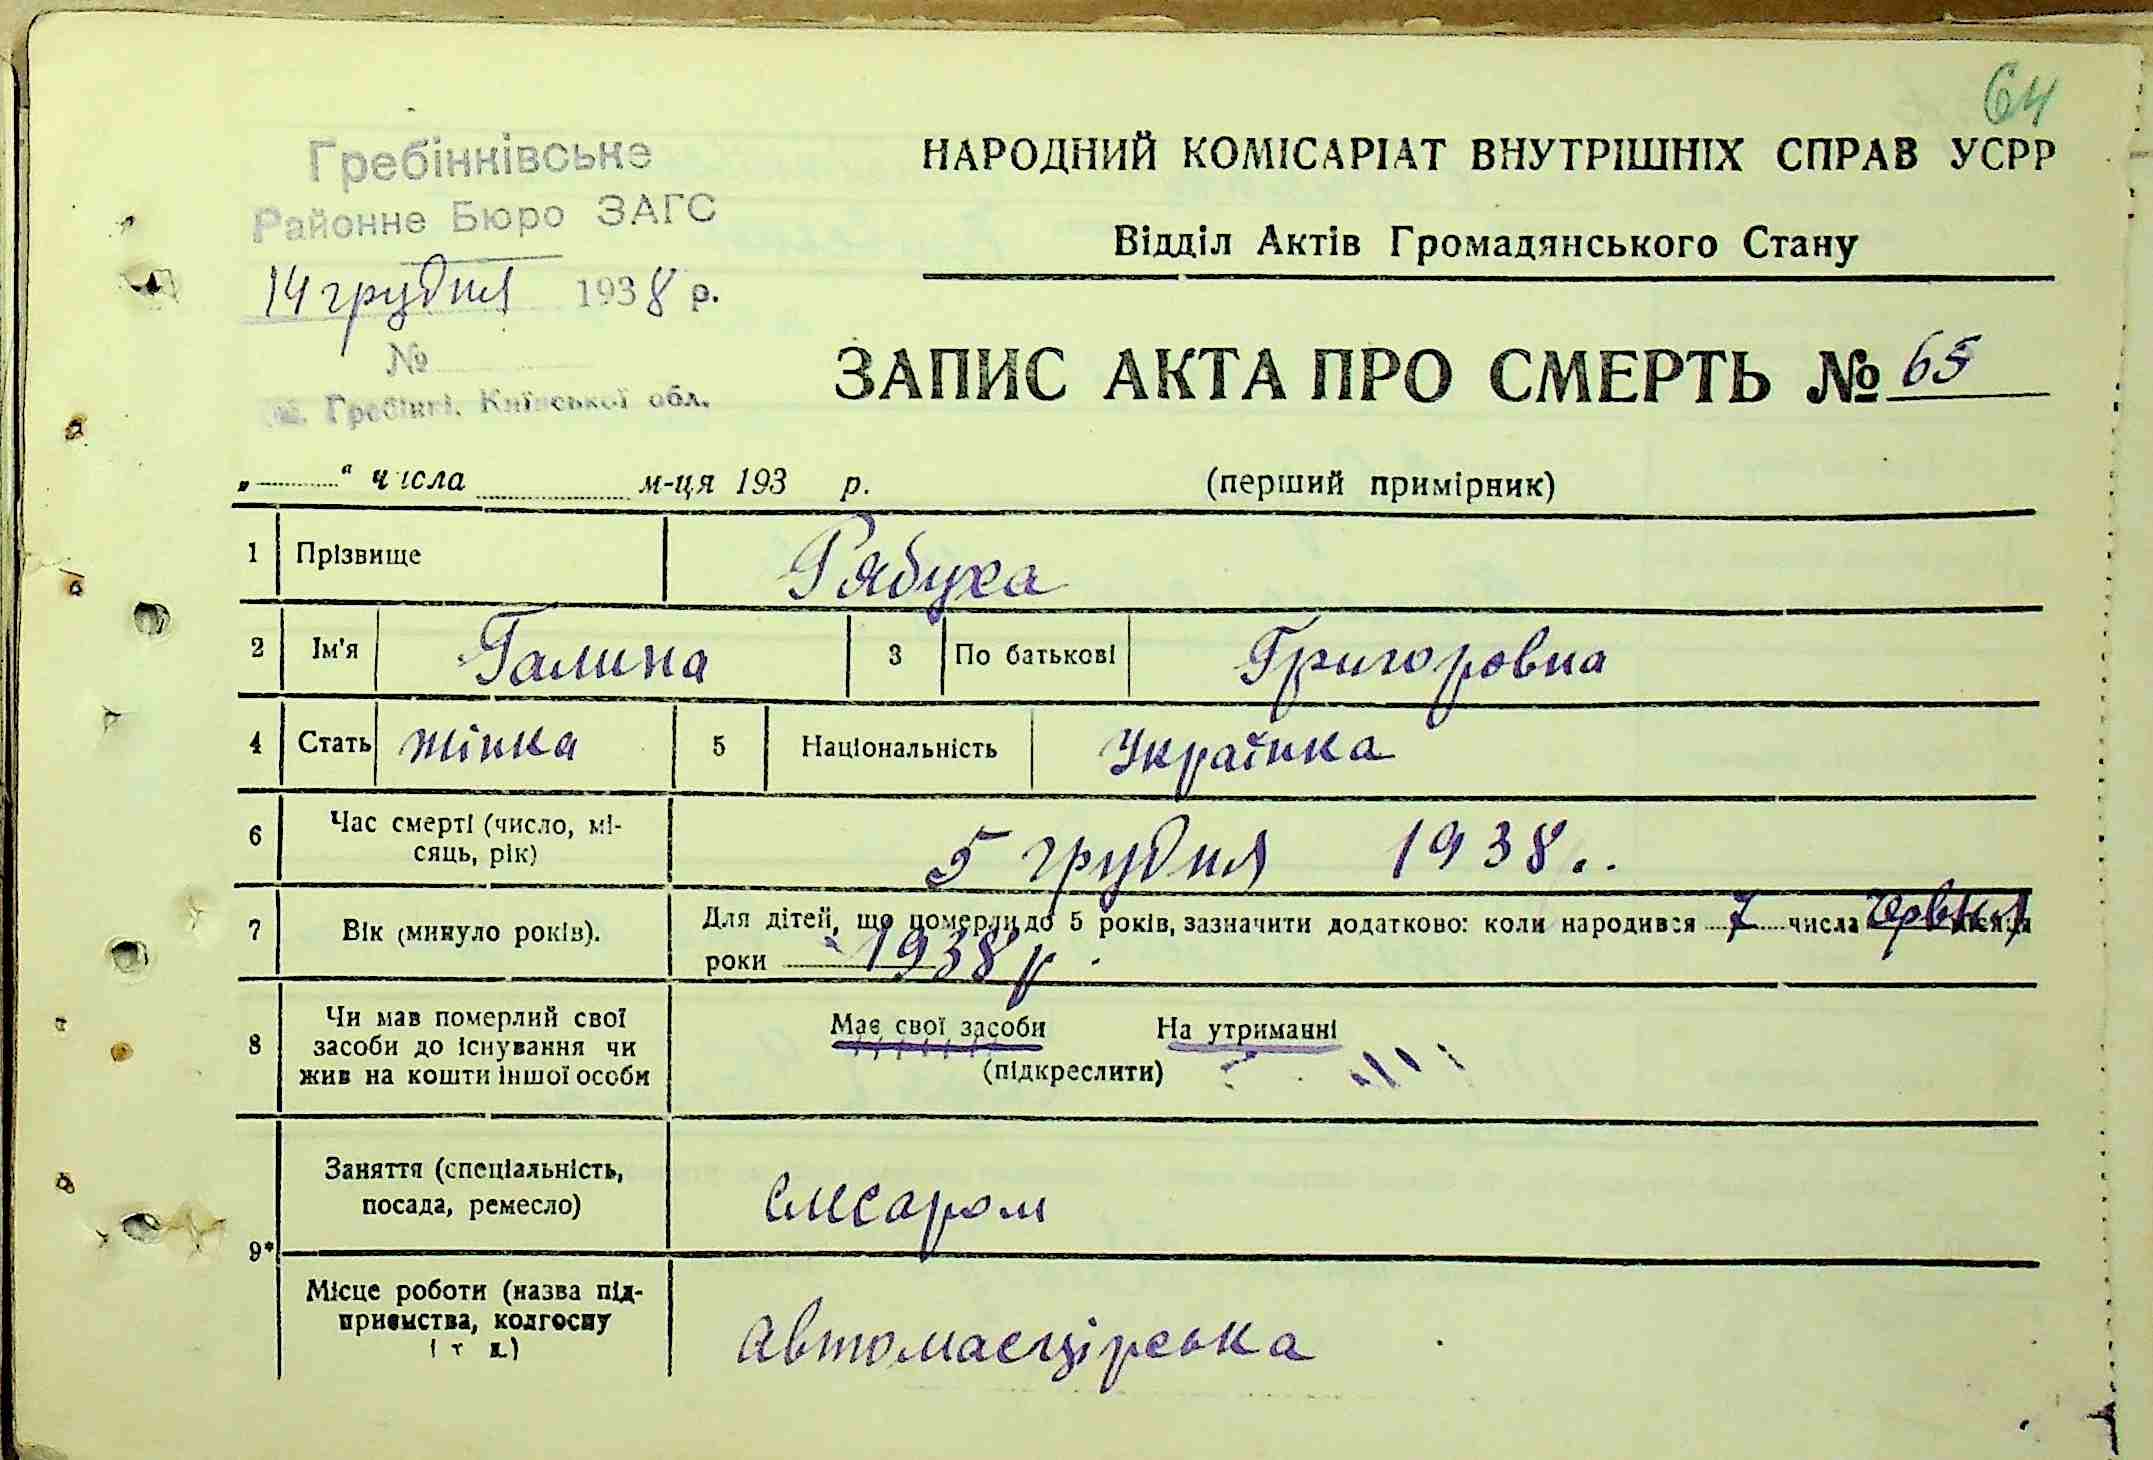 64
Гребінківське
Районне Бюро ЗАГС
14 грудня 1938 р.
№
Гребінкі, Київської обл.
НАРОДНИЙ КОМІСАРІАТ ВНУТРІШНІХ СПРАВ УСРР
Відділ Актів Громадянського Стану
ЗАПИС АКТА ПРО СМЕРТЬ № 65
„ “ числа м-ця 193 р. (перший примірник)
1 Прізвище Рябуха
2 Ім'я Галина 3 По батькові Григоровна
4 Стать жінка 5 Національність Українка
6 Час смерті (число, мі-
сяць, рік) 5 грудня 1938..
7 Вік (минуло років). Для дітей, що померли до 5 років, зазначити додатково: коли народився 7 числа червня місяця
роки 1938 р.
8 Чи мав померлий свої
засоби до існування чи
жив на кошти іншої особи
Має свої засоби На утриманні
(підкреслити)
9* Заняття (спеціальність,
посада, ремесло) слюсаром
Місце роботи (назва під-
приємства, колгоспу
і т д.) автомасцірська